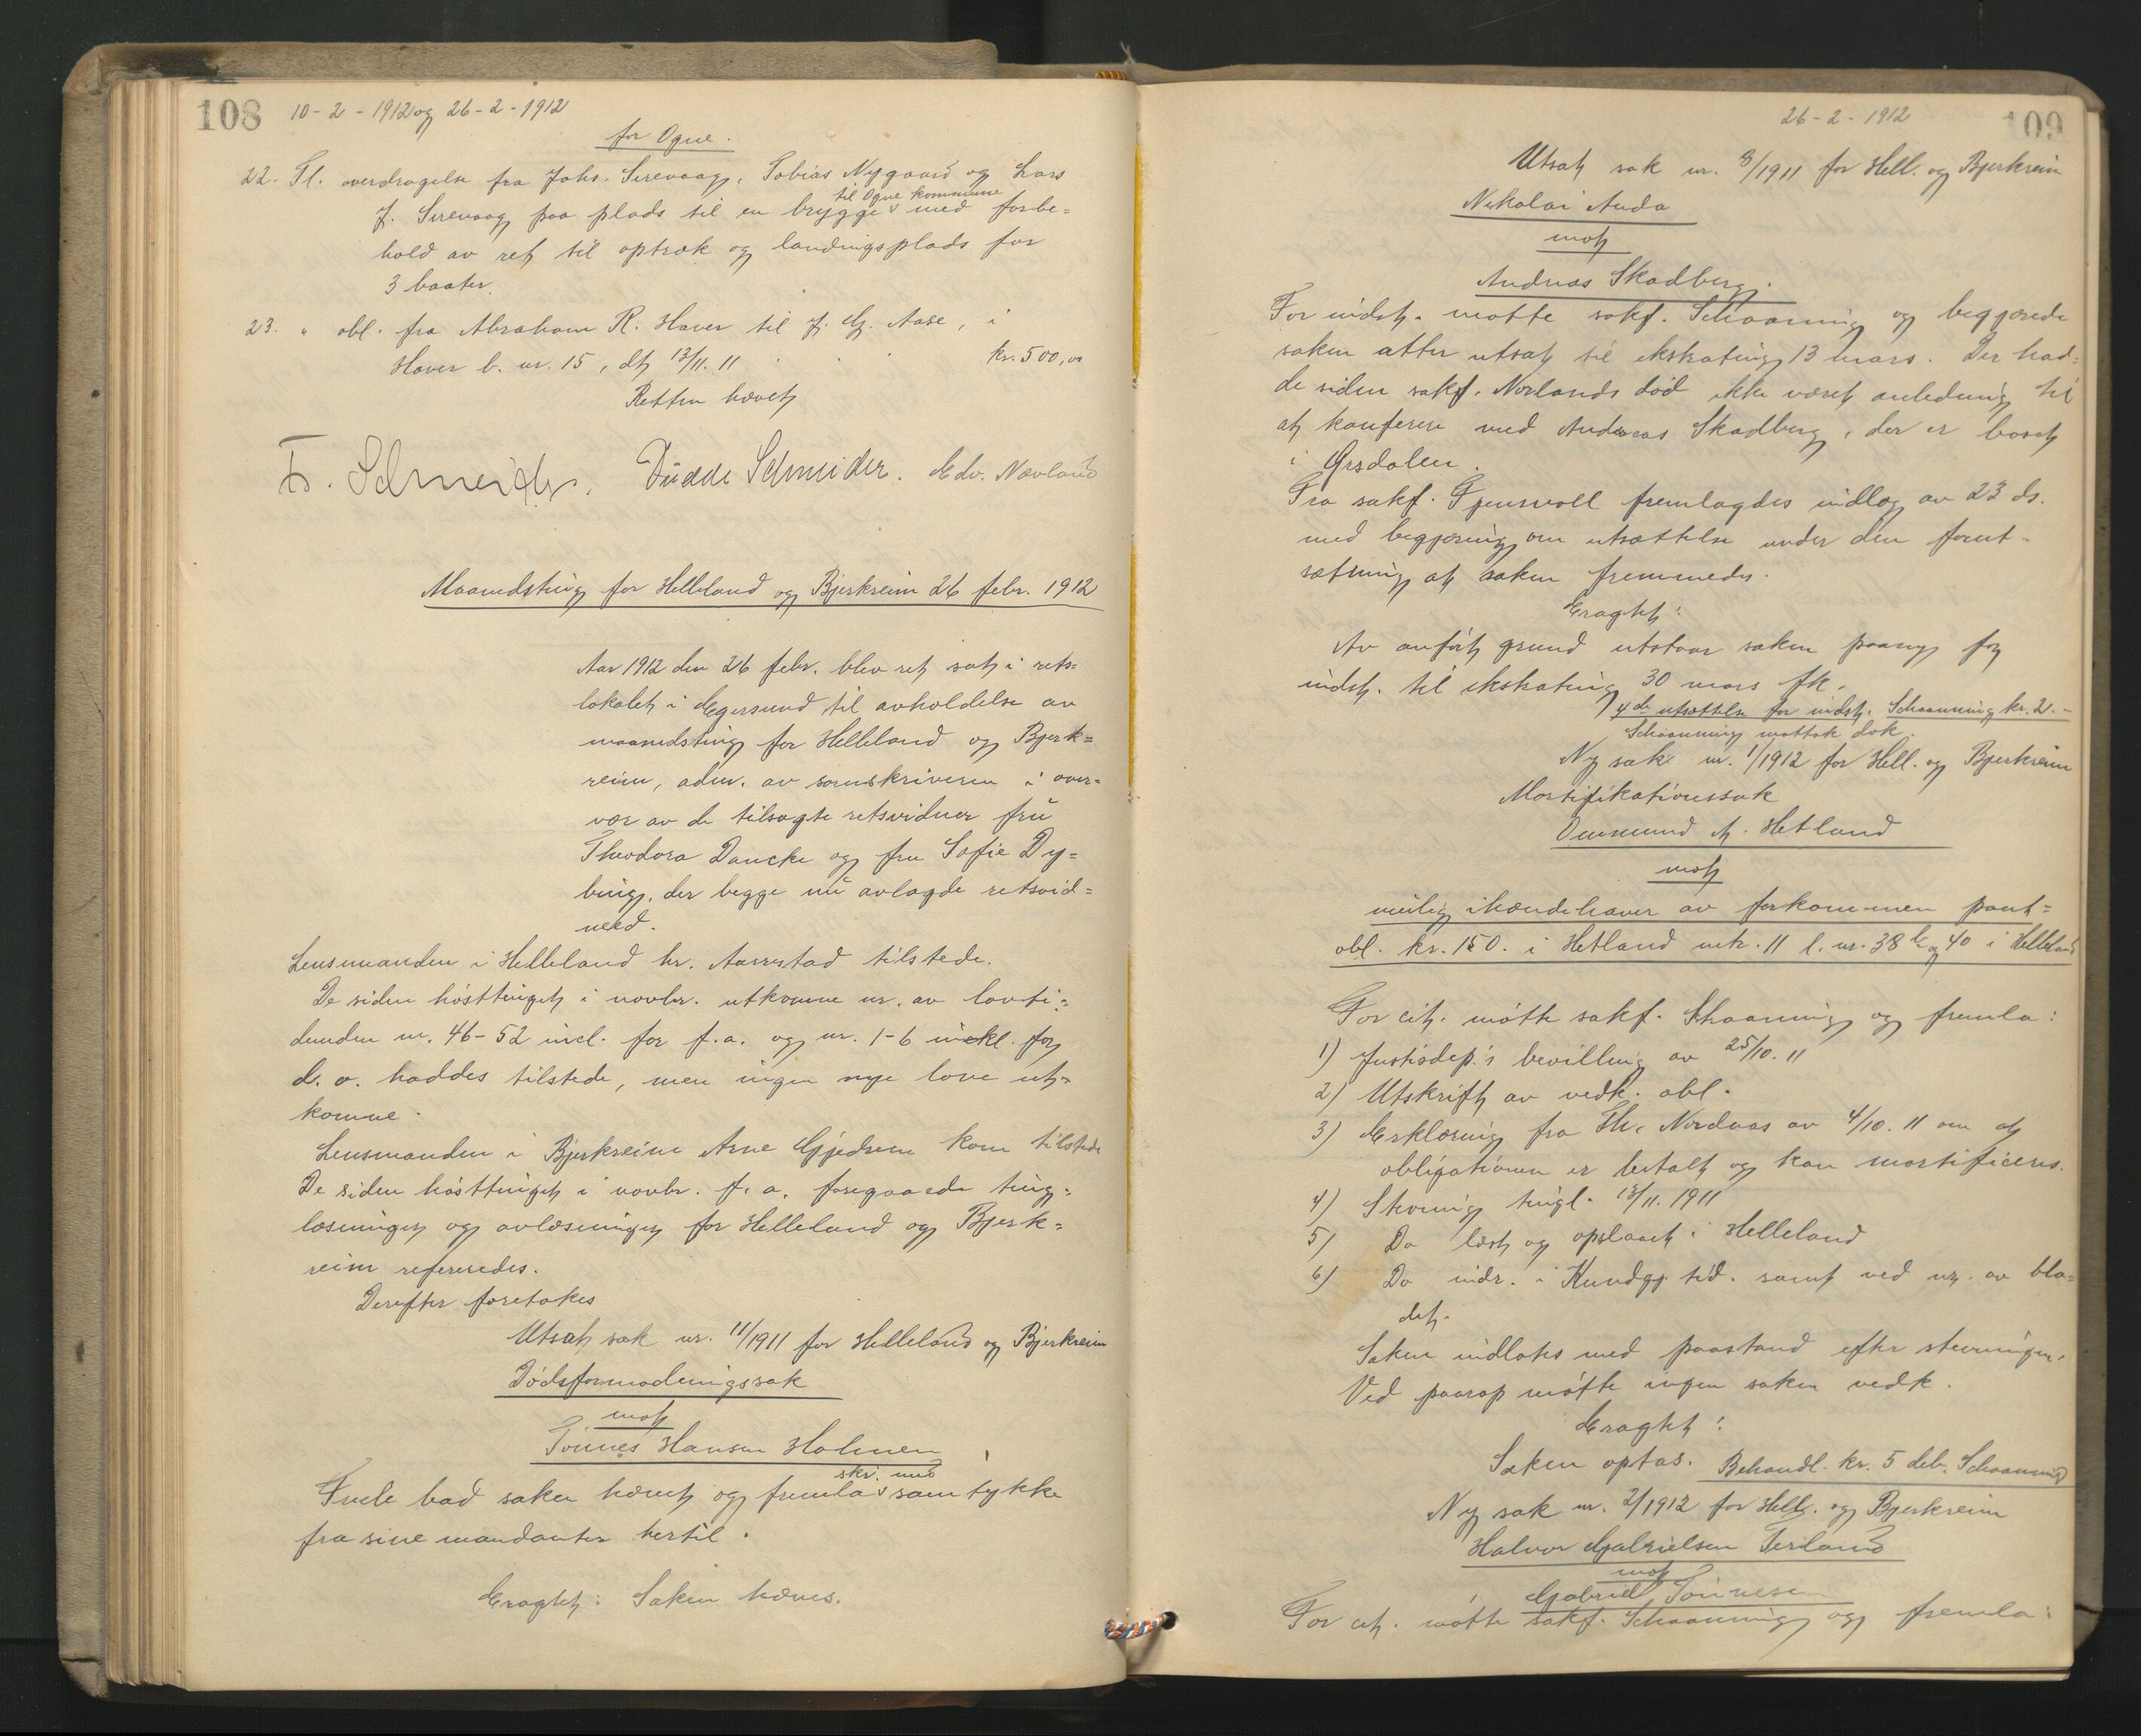 108 10-2-1912 og 26-2-1912
for Ogne.
22. Tl. overdragelse fra Johs. Sirevaag, Tobias Nygaard og Lars
til Ogne kommune
J. Sirevaag paa plads til en brygge med forbe=
hold av ret til optræk og landingsplads for
3 baater.
23. " obl. fra Abraham R. Haver til J. G. Aase, i
Haver b. nr. 15, dt 13/11. 11 kr. 500,00
Retten hævet
Fr. Schneider. Didde Schneider. Edv. Nævland
Maanedsting for Helleland og Bjerkreim 26 febr. 1912
Aar 1912 den 26 febr. blev ret sat i rets=
lokalet i Egersund til avholdelse av
maanedsting for Helleland og Bjerk=
reim, adm. av sorenskriveren i over=
vær av de tilsagte retsvidner fru
Theodora Dancke og fru Sofie Dy=
bing, der begge nu avlagde retsvid=
need.
Lensmanden i Helleland hr. Aarrestad tilstede.
De siden høsttinget i novbr. utkomne nr. av lovti=
denden nr. 46-52 incl. for f.a. og nr. 1-6 inckl. for
d. a. haddes tilstede, men ingen nye love ut=
komne.
Lensmanden i Bjerkreim Arne Gjedrem kom tilstede
De siden høsttinget i novbr. f. a. foregaaede ting=
læsninger og avlæsninger for Helleland og Bjerk=
reim refereredes.
Derefter foretokes
Utsat sak nr. 11/1911 for Helleland og Bjerkreim
Dødsformodningssak
mot
Tønnes Hansen Holmen
skr. med
Tvele bad saken hævet og fremla samtykke
fra sine mandanter hertil.
Eragtet: Saken hæves.
26-2-1912 109
Utsat sak nr. 8/1911 for Hell. og Bjerkreim
Nikolai Auda
mot
Andreas Skadberg.
For indst. møtte sakf. Schaanning og begjærede
saken atter utsat til ekstrating 13 mars. Der had=
de siden sakf. Nørlands død ikke været anledning til
at konferere med Andreas Skadberg, der er bosat
i Ørsdalen.
Fra sakf. Tjensvoll fremlagdes indlæg av 23 ds.
med begjæring om utsættelse under den forut=
sætning at saken fremmedes.
Eragtet:
Av anført grund utstaar saken paany for
indst. til ekstrating 30 mars fk.
4de utsættelse for indst. Schaanning kr. 2.-
Schaanning mottok dok.
Ny sak nr. 1/1912 for Hell. og Bjerkreim
Mortifikationssak
Ommund A. Hetland
mot
mulig ihændehaver av forkommen pant=
obl. kr. 150. i Hetland mtr. 11 l. nr. 38 b og 40 i Helleland
For cit. møtte sakf. Schaanning og fremla:
1) Justisdep.'s bevilling av 25/10. 11
2) Utskrift av vedk. obl.
3) Erklæring fra Th. Nordaas av 4/10. 11 om at
obligationen er betalt og kan mortificeres.
4) Stevning tingl. 13/11. 1911
5) Do læst og opslaaet i Helleland
6) Do indr. i Kundgj. tid. samt ved nr. av bla=
det.
Saken indlates med paastand efter stevningen.
Ved paarop møtte ingen saken vedk.
Eragtet:
Saken optas. Behandl. kr. 5 deb. Schaanning
Ny sak nr. 2/1912 for Hell. og Bjerkreim
Halvor Gabrielsen Terland
mot
Gabriel Tønnesen
For cit. møtte sakf. Schaanning og fremla: